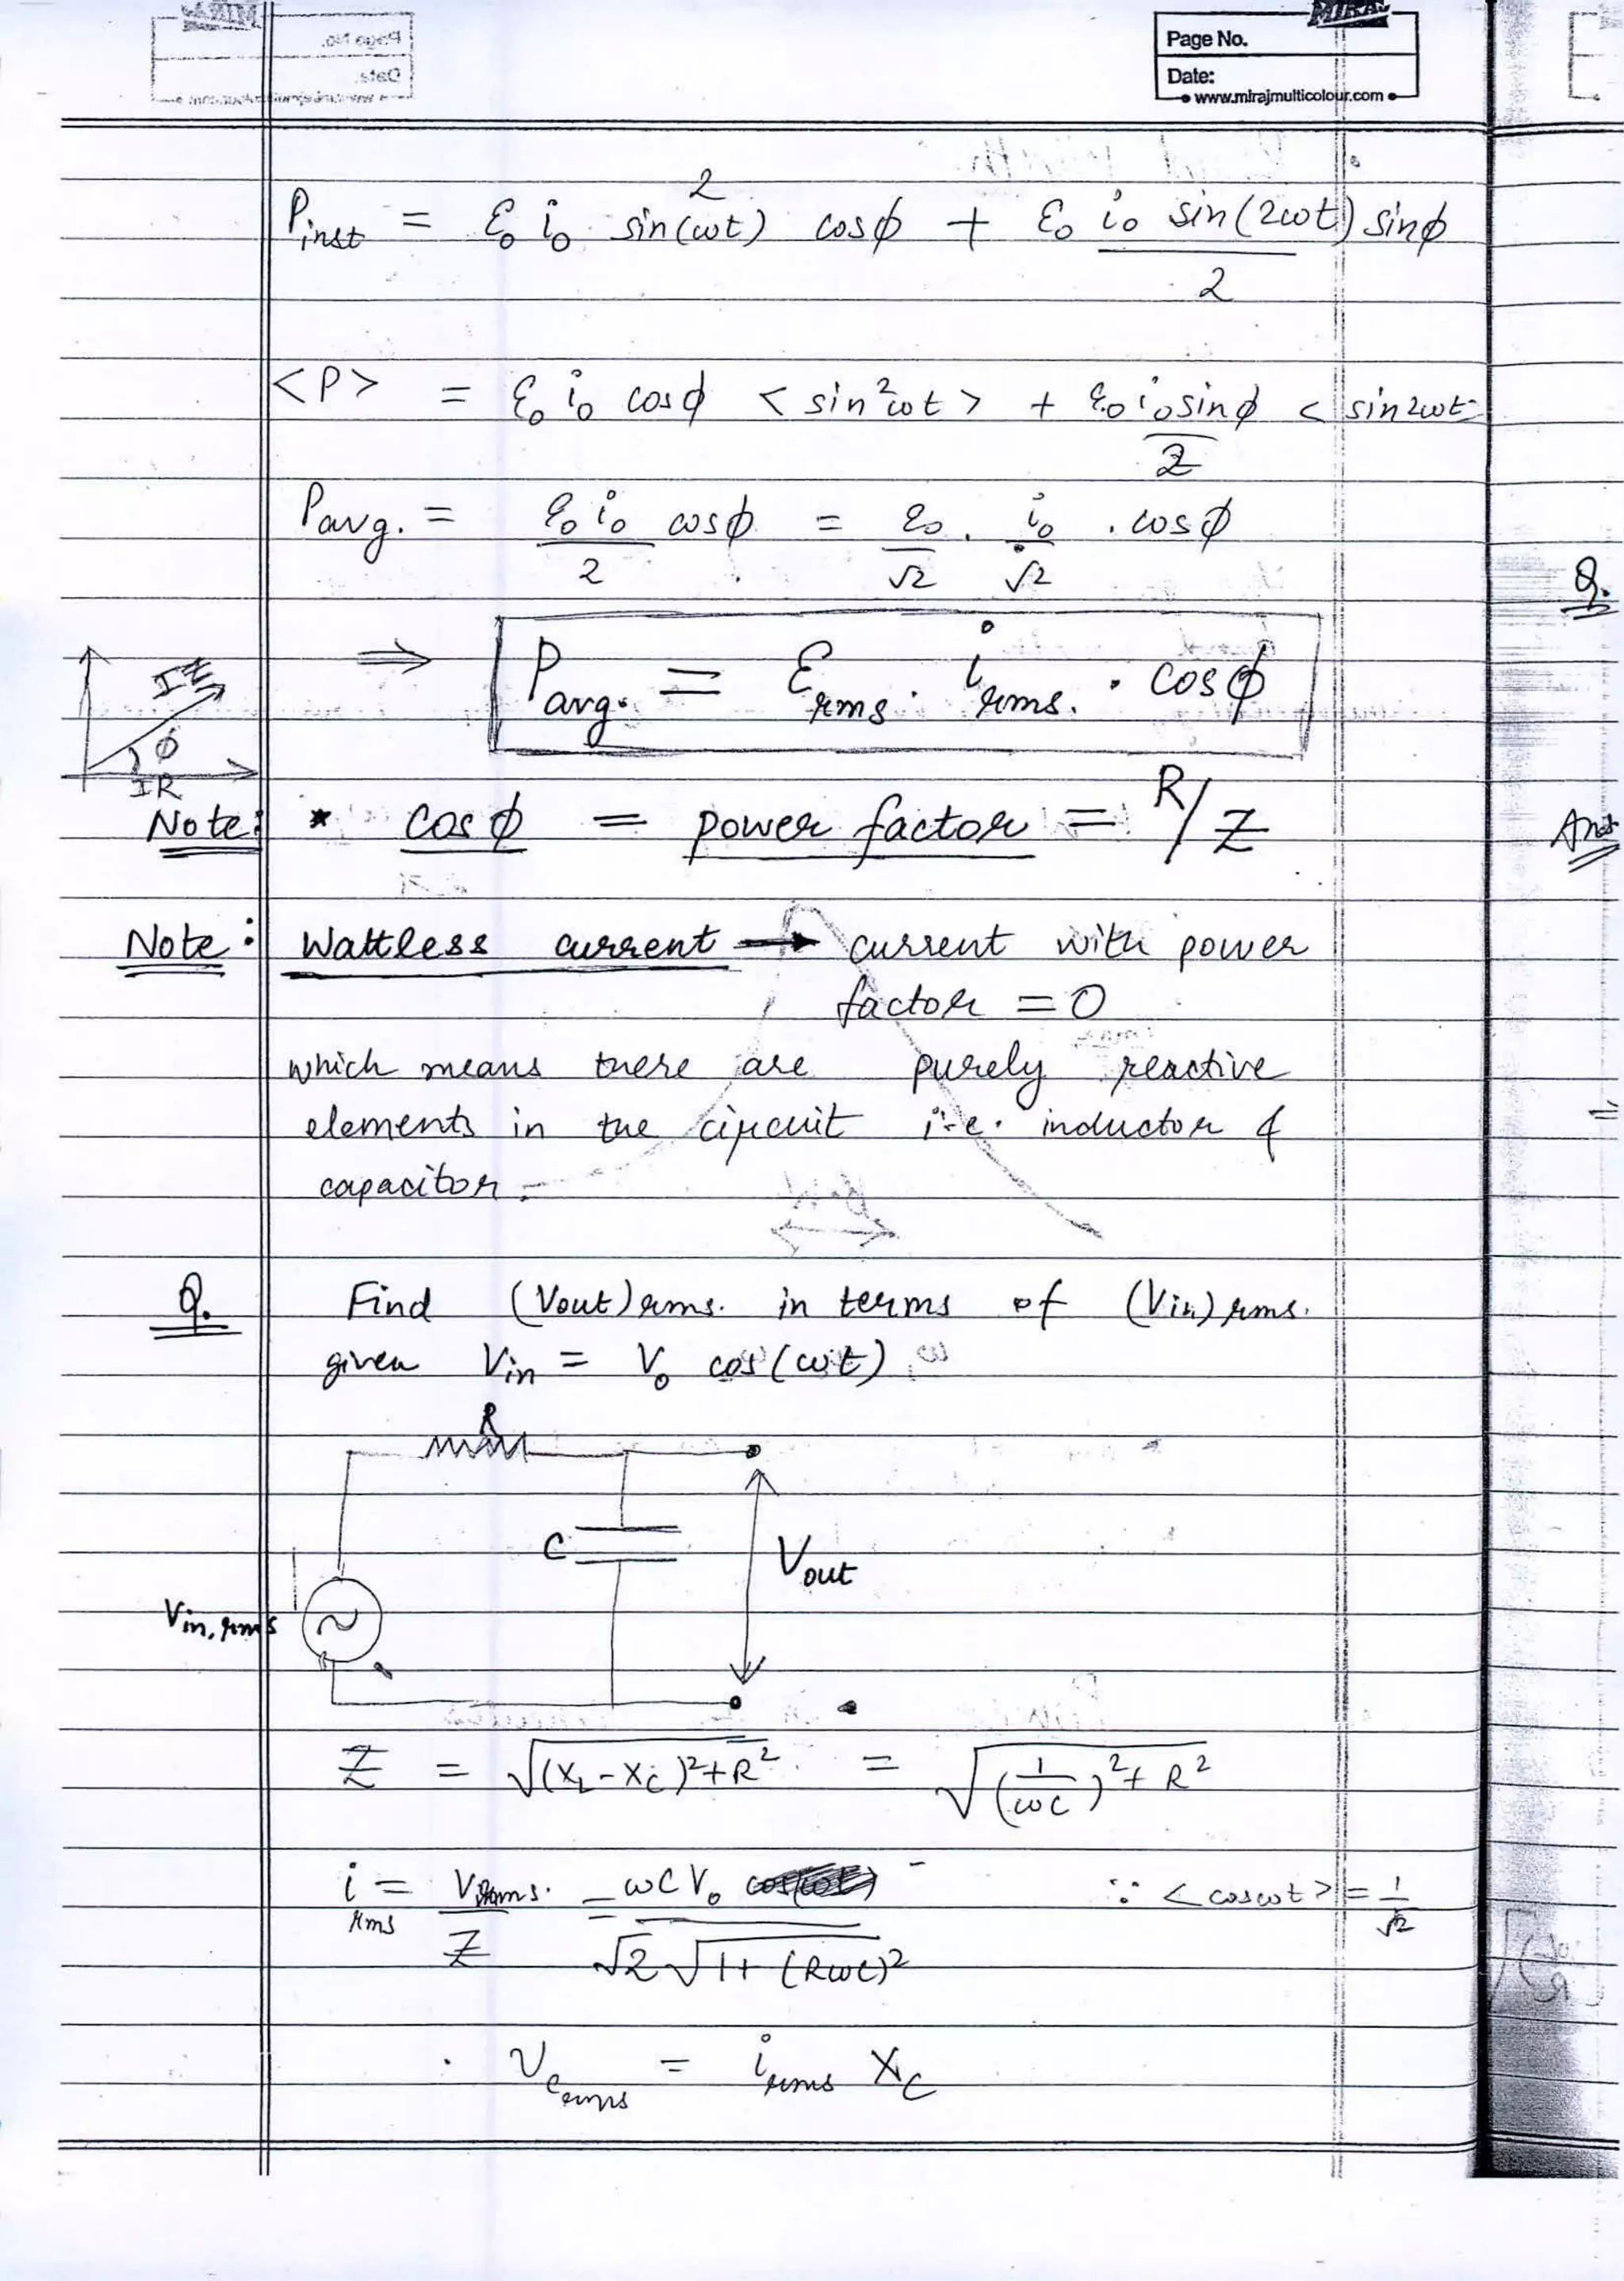 MIRAJ
Page No.
Date:
www.mirajmulticolour.com
P_inst = ℰ₀ i₀ sin²(ωt) cosϕ + ℰ₀ i₀ sin(2ωt) sinϕ / 2
<P> = ℰ₀ i₀ cosϕ < sin²ωt > + ℰ₀ i₀ sinϕ / 2 < sin2ωt
Pavg. = ℰ₀ i₀ / 2 cosϕ = ℰ₀ / √2 . i₀ / √2 . cosϕ
⇒ Pavg. = ℰ_rms . i_rms. . cosϕ
IZ
ϕ
IR
Note: * cosϕ = power factor = R/Z
Note: Wattless current → current with power
factor = 0
which means there are purely reactive
elements in the circuit i.e. inductor &
capacitor.
Q. Find (Vout)rms. in terms of (Vin)rms.
given Vin = V₀ cos(ωt)
R
C
Vout
Vin, rms
Z = √((X_L - X_C)² + R²) = √((1/ωC)² + R²)
i_rms = Vrms. / Z = ωC V₀ / √2 √(1 + (RωC)²) ∵ <cosωt> = 1/√2
V_C rms = i_rms X_C
Q.
Ans
=